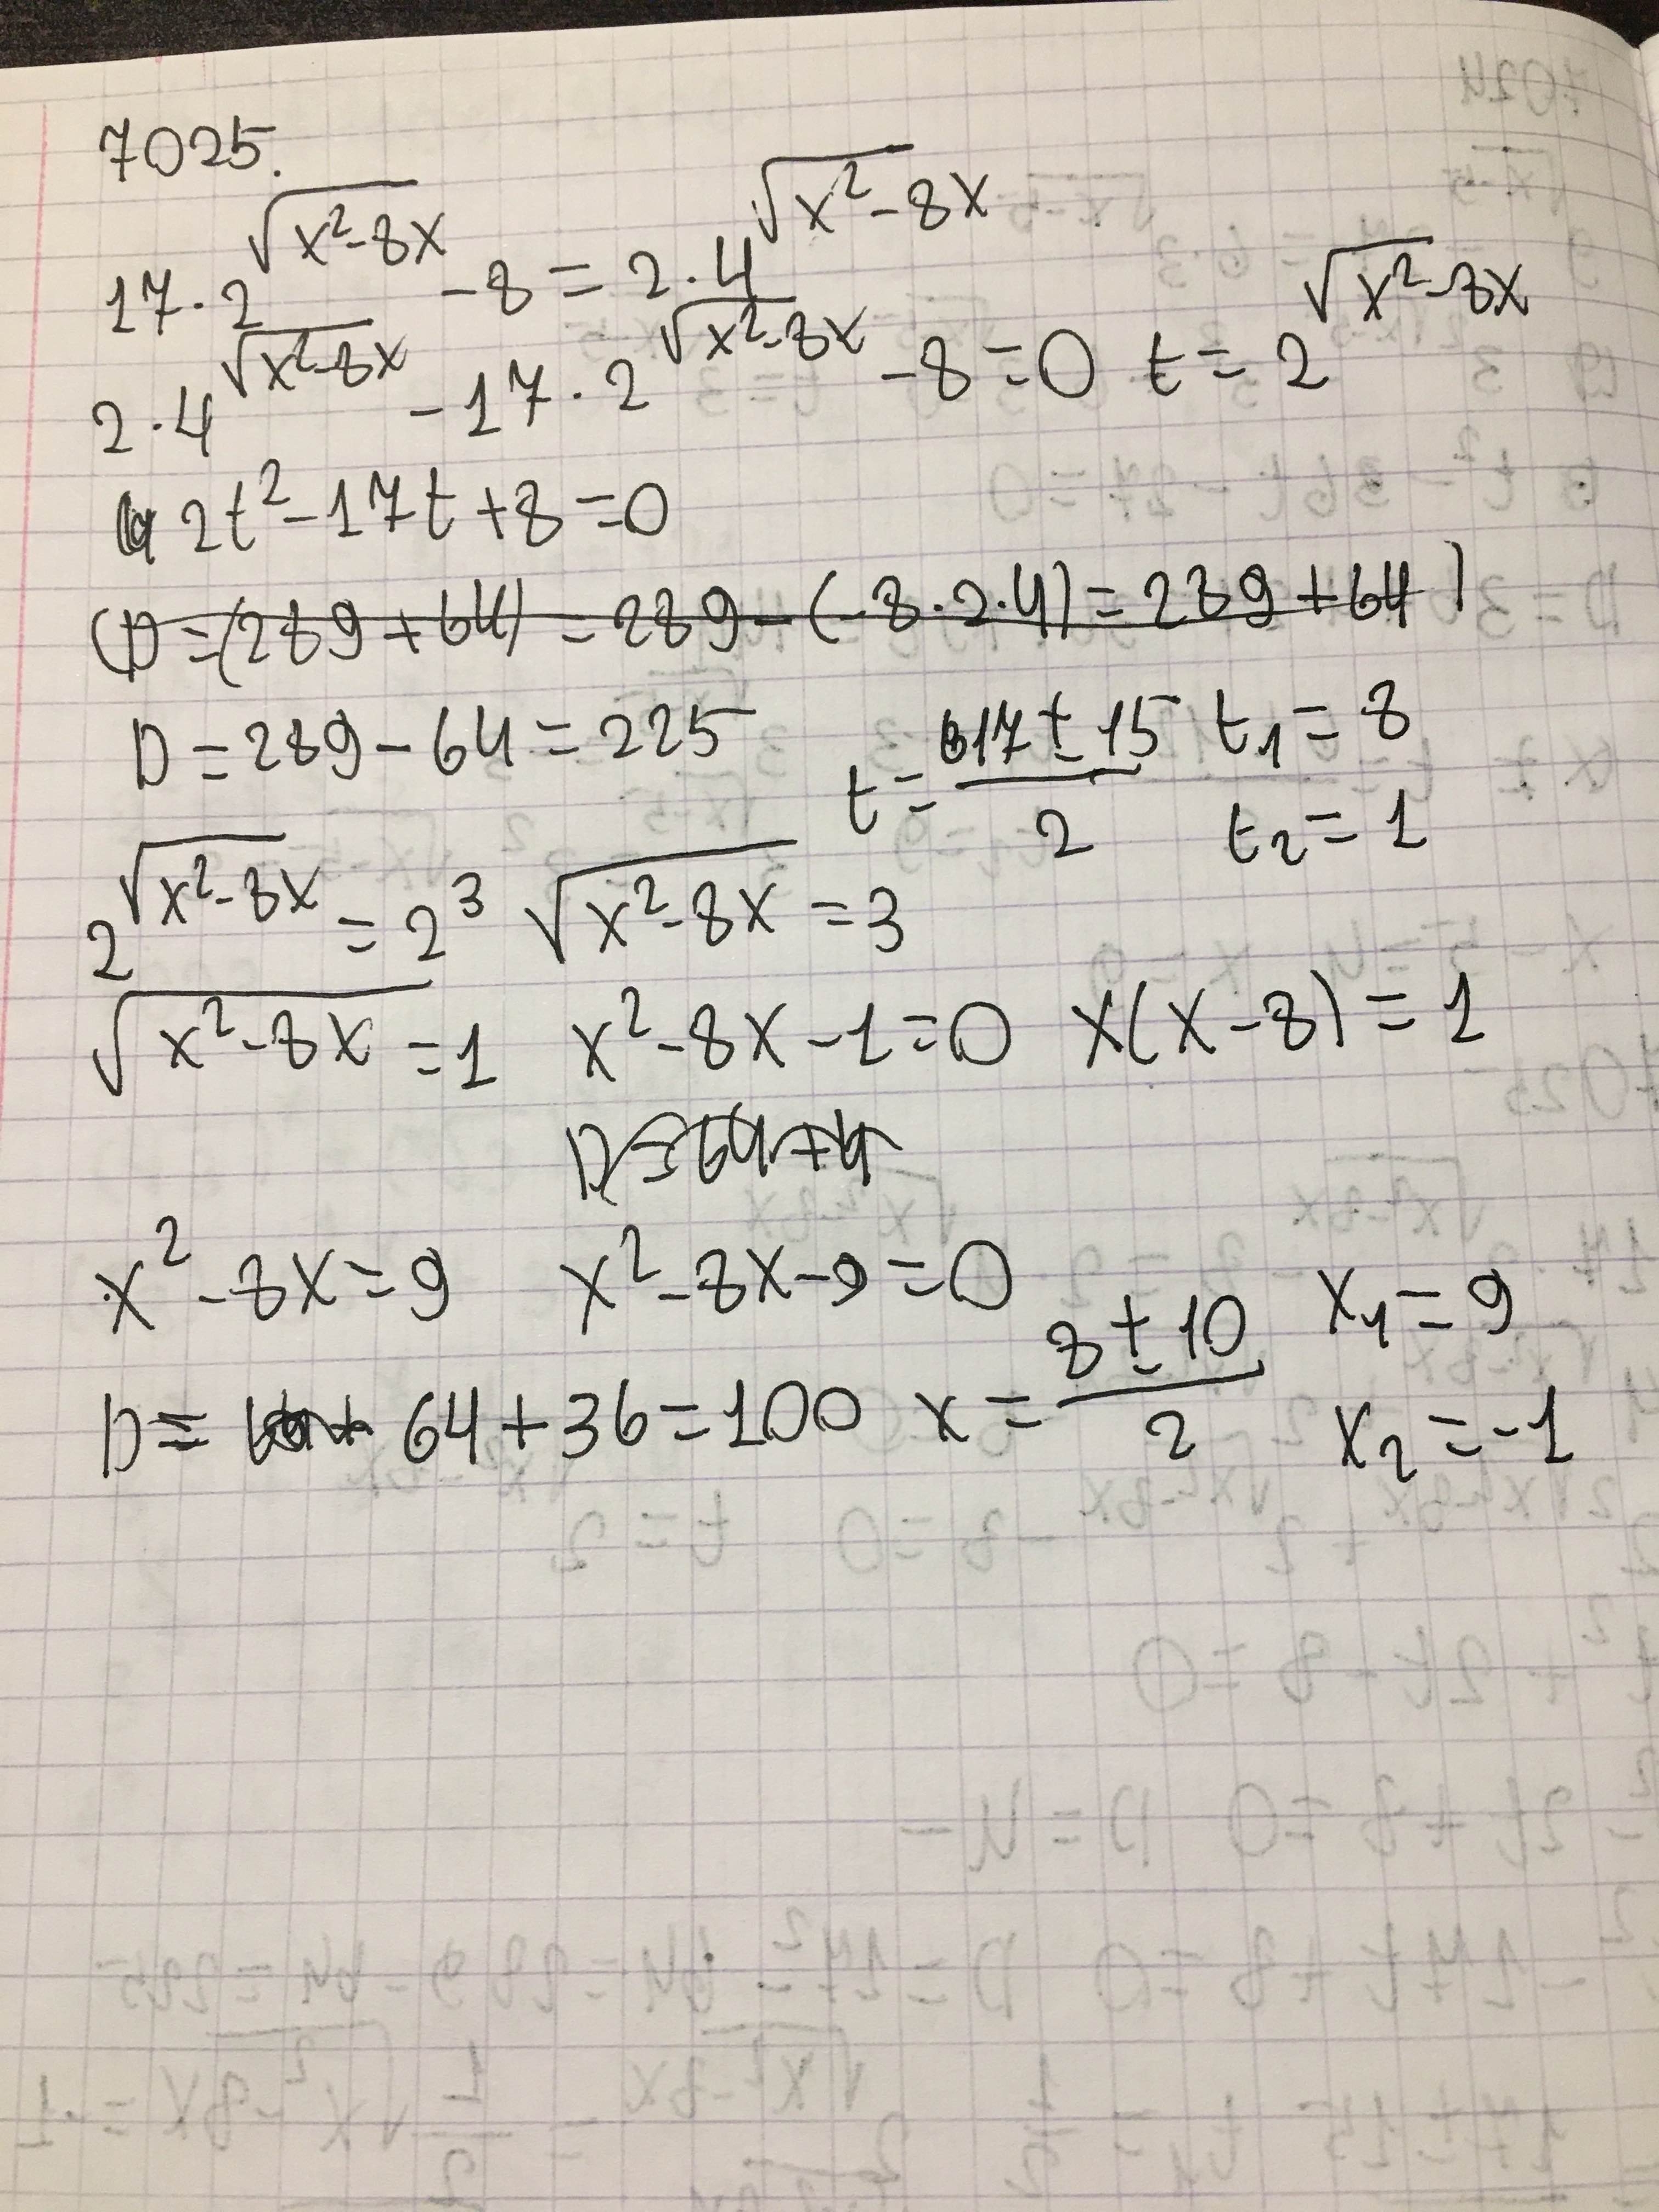 7025.
17·2^√(x²-8x) -8=2·4^√(x²-8x)
2·4^√(x²-8x) -17·2^√(x²-8x) -8=0 t=2^√(x²-8x)
2t²-17t+8=0
(D=(289+64)=289-(-8·2·4)=289+64)
D=289-64=225 t=(17±15)/2 t₁=8
t₂=1
2^√(x²-8x)=2³ √(x²-8x)=3
√(x²-8x)=1 x²-8x-1=0 x(x-8)=1
D=64+4
x²-8x=9 x²-8x-9=0 x₁=9
D=64+36=100 x=(8±10)/2 x₂=-1